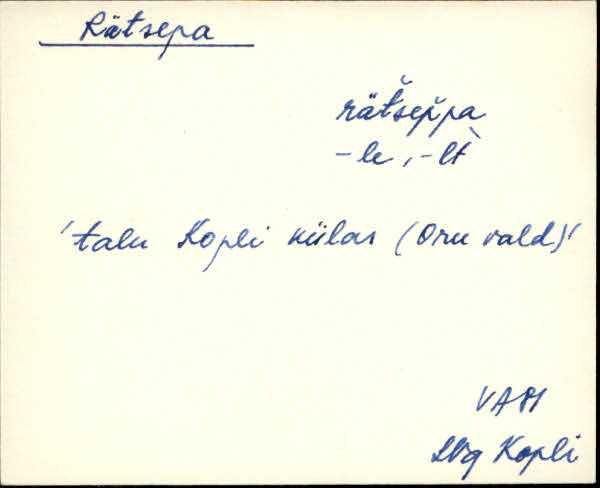 Rätsepa
rät̆šep̆pa
-le, -lt̀
'talu Kopli külas (Oru vald)'
VABI
Lüg Kopli